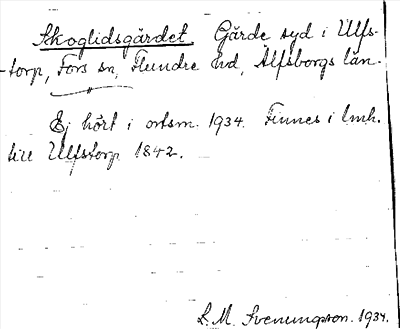 Skoglidsgärdet. Gärde syd i Ulfs-
-torp, Fors sn, Flundre hd, Älfsborgs län.
Ej hört i ortsm. 1934. Finnes i lmh.
till Ulfstorp 1842.
S. M. Svenungsson. 1934.